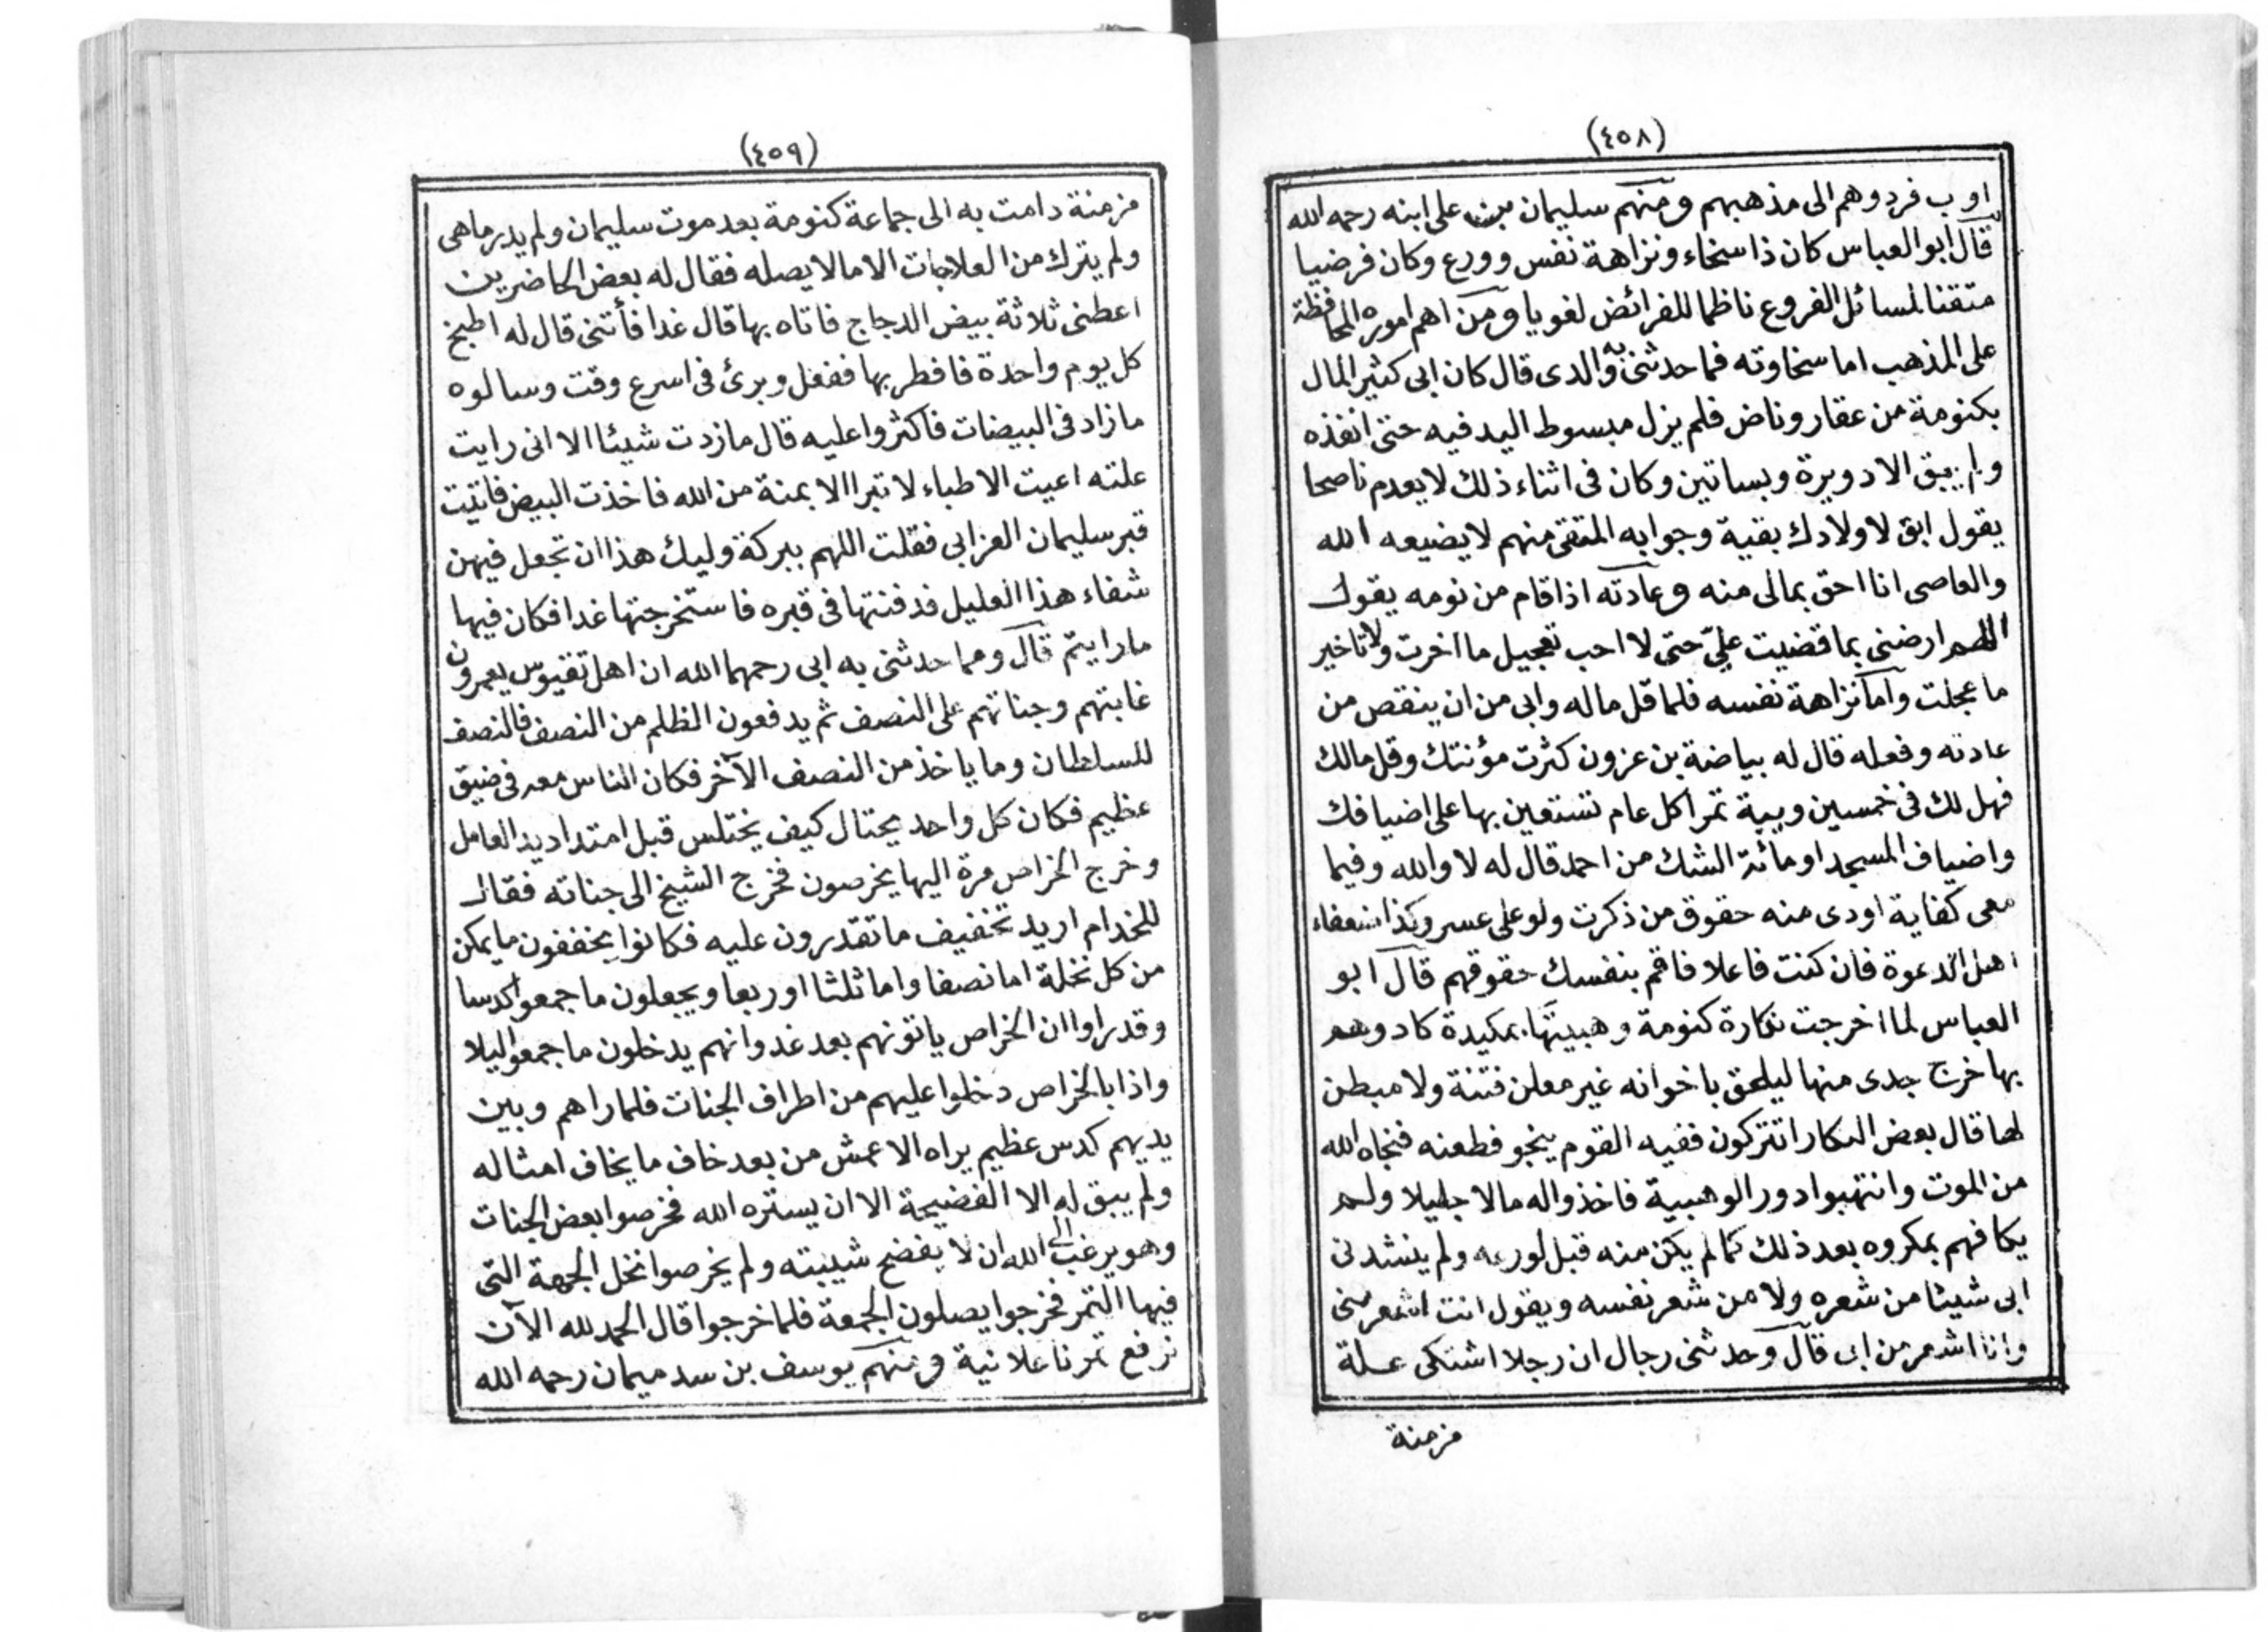 (٤٥٨)
اوب فردوهم الى مذهبهم ومنهم سليمان بن على ابنه رحمه الله
قال ابو العباس كان ذا سخاء ونزاهة نفس وورع وكان فرضيا
متقنا لمسائل الفروع ناظما للفرائض لغويا ومن اهم اموره المحافظة
على المذهب اما سخاوته فما حدثنى به والدى قال كان ابى كثير المال
بكنومة من عقار وناض فلم يزل مبسوط اليد فيه حتى انفذه
ولم يبق الا دويرة وبساتين وكان فى اثناء ذلك لا يعدم ناصحا
يقول ابق لاولادك بقية وجوابه المتقى منهم لا يضيعه الله
والعاصى انا احق بمالى منه وعادته اذا قام من نومه يقول
اللهم ارضنى بما قضيت علىّ حتى لا احب تعجيل ما اخرت ولا تاخير
ما عجلت واما نزاهة نفسه فلما قل ماله وابى من ان ينقص من
عادته وفعله قال له بياضة بن عزون كثرت مؤنتك وقل مالك
فهل لك فى خمسين ويبة تمرا كل عام تستعين بها على اضيافك
واضياف المسجد او مائة الشك من احمد قال له لا والله وفيما
معى كفاية اودى منه حقوق من ذكرت ولو على عسر وكذا ضعفاء
اهل الدعوة فان كنت فاعلا فاقم بنفسك حقوقهم قال ابو
العباس لما اخرجت نكارة كنومة وهبيتها بمكيدة كادوهم
بها خرج جدى منها ليلحق باخوانه غير معلن فتنة ولا مبطن
لها قال بعض النكار اتتركون فقيه القوم ينجو فطعنه فنجاه الله
من الموت وانتهبوا دور الوهبية فاخذوا له مالا جليلا ولم
يكافهم بمكروه بعد ذلك كما لم يكن منه قبل لورعه ولم ينشدنى
ابى شيئا من شعره ولا من شعر نفسه ويقول انت اشعر منى
وانا اشعر من ابى قال وحدثنى رجال ان رجلا اشتكى علة
مزمنة
(٤٥٩)
مزمنة دامت به الى جماعة كنومة بعد موت سليمان ولم يدر ما هى
ولم يترك من العلاجات الا ما لا يصله فقال له بعض الحاضرين
اعطنى ثلاثة بيض الدجاج فاتاه بها قال غدا فأتنى قال له اطبخ
كل يوم واحدة فافطر بها ففعل وبرئ فى اسرع وقت وسالوه
ما زاد فى البيضات فاكثروا عليه قال ما زدت شيئا الا انى رايت
علته اعيت الاطباء لا تبرا الا بمنة من الله فاخذت البيض فاتيت
قبر سليمان العزابى فقلت اللهم ببركة وليك هذا ان تجعل فيهن
شفاء هذا العليل فدفنتها فى قبره فاستخرجتها غدا فكان فيها
ما رايتم قال ومما حدثنى به ابى رحمهما الله ان اهل تقيوس يعمرون
غابتهم وجناتهم على النصف ثم يدفعون الظلم من النصف فالنصف
للسلطان وما ياخذ من النصف الآخر فكان الناس معه فى ضيق
عظيم فكان كل واحد يحتال كيف يختلس قبل امتداد يد العامل
وخرج الخراص مرة اليها يخرصون فخرج الشيخ الى جناته فقال
للخدام اريد تخفيف ما تقدرون عليه فكانوا يخففون ما يمكن
من كل نخلة اما نصفا واما ثلثا او ربعا ويجعلون ما جمعوا كدسا
وقد راوا ان الخراص ياتونهم بعد غد وانهم يدخلون ما جمعوا ليلا
واذا بالخراص دخلوا عليهم من اطراف الجنات فلما راهم وبين
يديهم كدس عظيم يراه الاعمش من بعد خاف ما يخاف امثاله
ولم يبق له الا الفضيحة الا ان يستره الله فخرصوا بعض الجنات
وهو يرغب الى الله ان لا يفضح شيبته ولم يخرصوا نخل الجهة التى
فيها التمر فخرجوا يصلون الجمعة فلما خرجوا قال الحمد لله الآن
نرفع تمرنا علانية ومنهم يوسف بن سدميمان رحمه الله